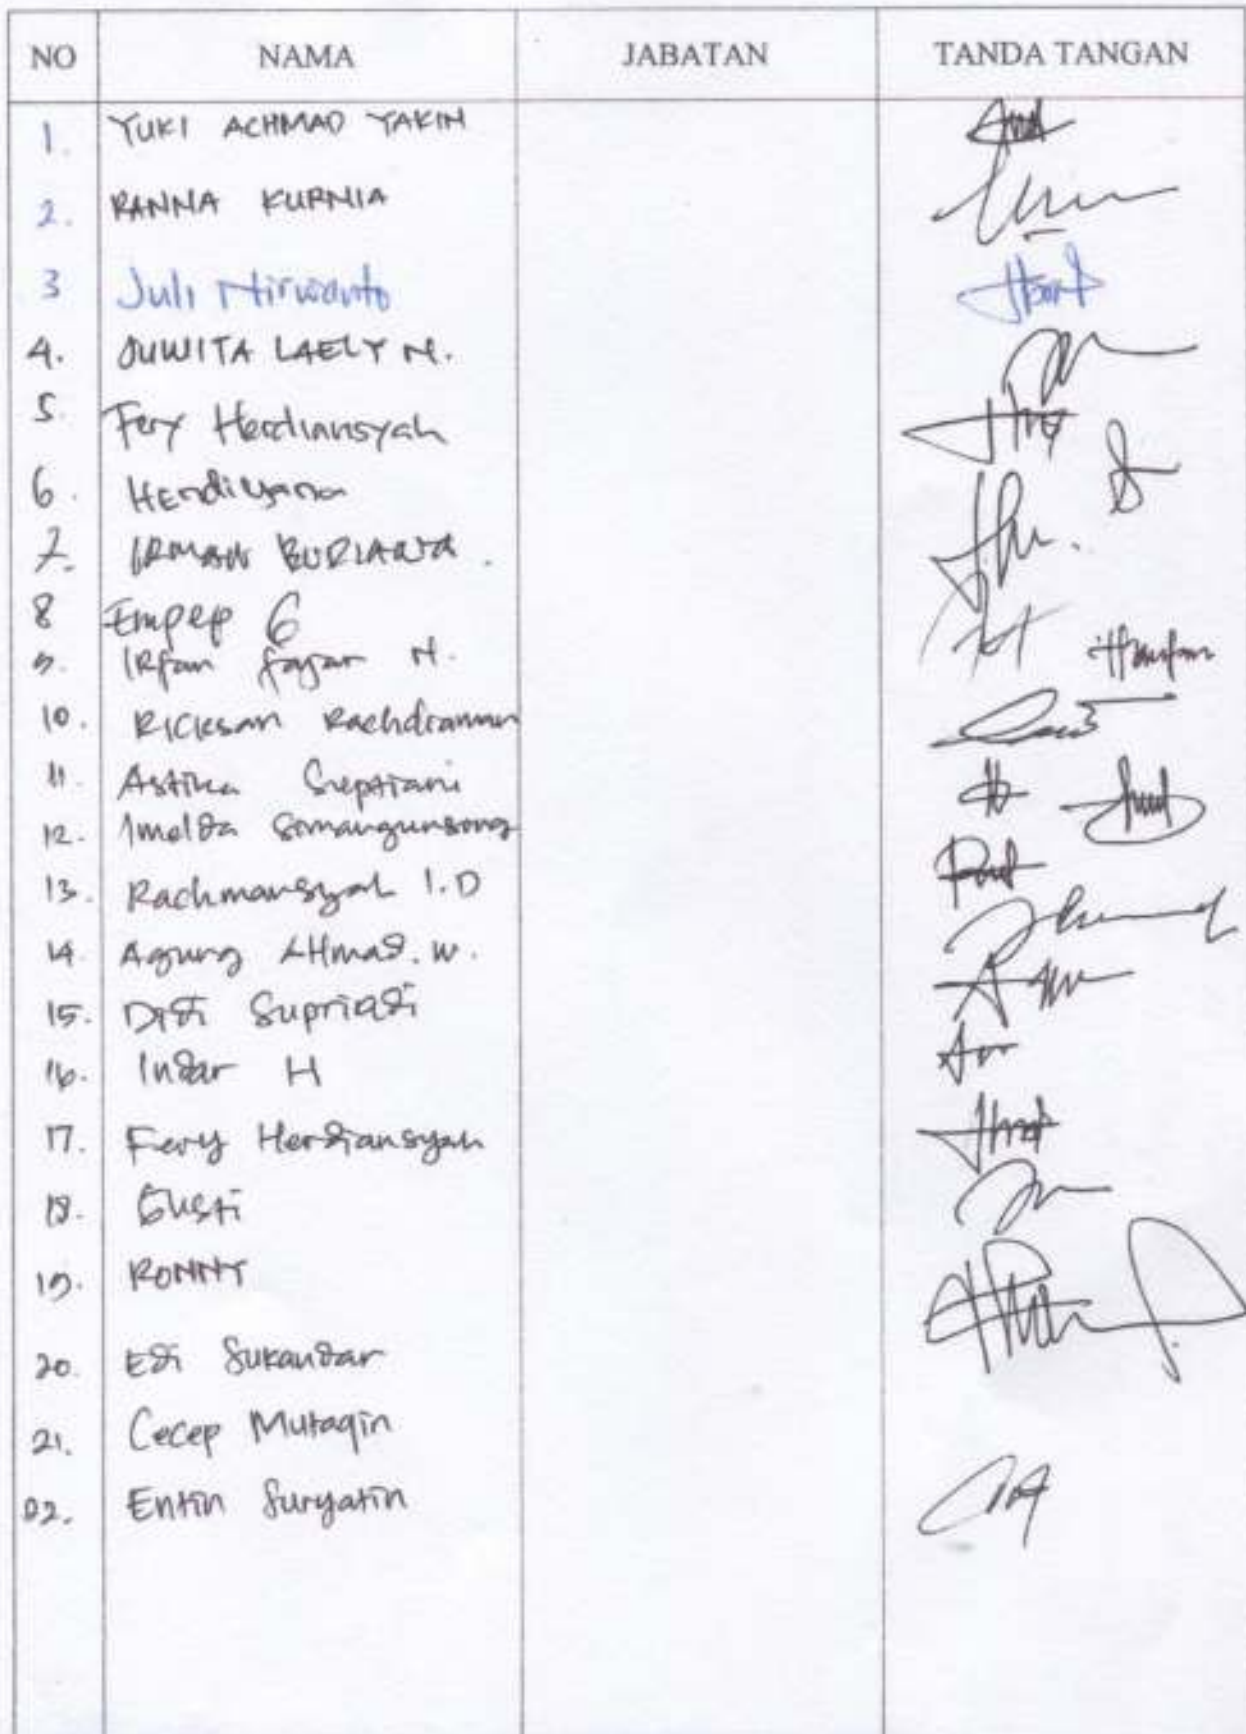 NO NAMA JABATAN TANDA TANGAN
1. YUKI ACHMAD YAKIN
2. RANNA KURNIA
3 Juli Nirwanto
4. JUWITA LAELY N.
5. Fery Herdiansyah
6. Herdiyana
7. IRMAN BURIANA.
8 Empep G
9. Irfan fajar N.
10. Ricksan Rachdraman
11. Astika Septiani
12. Imelda Simangunsong
13. Rachmansyah I.D
14. Agung AHmad. w.
15. Didi Supriadi
16. Indar H
17. Fery Herdiansyah
18. Gusti
19. RONNY
20. Edi Sukandar
21. Cecep Mutaqin
22. Entin Suryatin